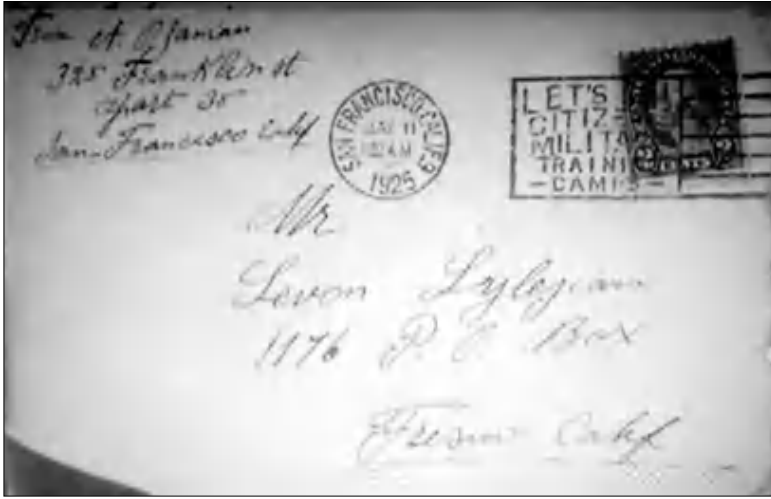 From A.
325 Franklin st
apart 35
San-Francisco Calif
SAN FRANCISCO, CALIF.
11
AM
1925
LET'S
CITIZ
MILITA
TRAINI
- CAMPS -
Mr
Levon
1176 P. O. Box
Fresno Calif